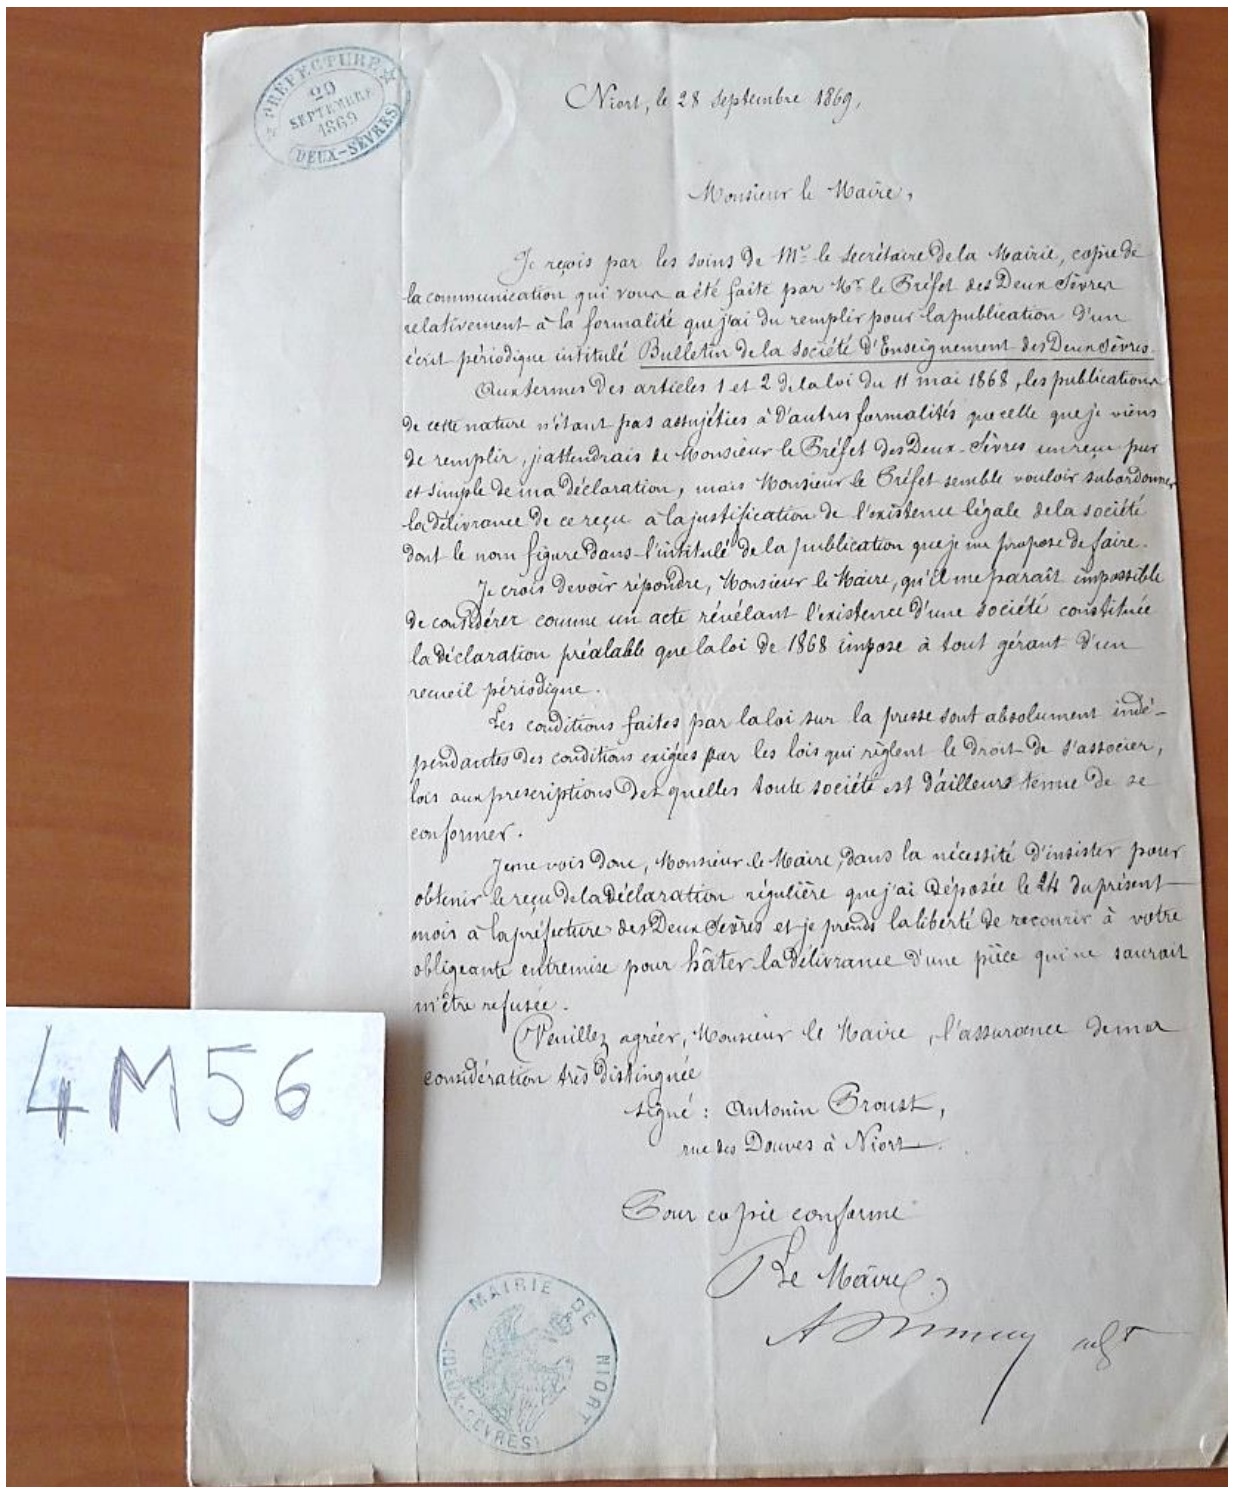 PRÉFECTURE
29
SEPTEMBRE
1869
(DEUX-SÈVRES)
Niort, le 28 septembre 1869,
Monsieur le Maire,
Je reçois par les soins de Mr le secrétaire de la Mairie, copie de
la communication qui vous a été faite par Mr le Préfet des Deux Sèvres
relativement à la formalité que j'ai du remplir pour la publication d'un
écrit périodique intitulé Bulletin de la Société d'Enseignement des Deux Sèvres.
Aux termes des articles 1 et 2 de la loi du 11 mai 1868, les publications
de cette nature n'étant pas assujéties à d'autres formalités que celle que je viens
de remplir, j'attendrais de Monsieur le Préfet des Deux-Sèvres un reçu pur
et simple de ma déclaration, mais Monsieur le Préfet semble vouloir subordonner
la délivrance de ce reçu à la justification de l'existence légale de la société
dont le nom figure dans l'intitulé de la publication que je me propose de faire.
Je crois devoir répondre, Monsieur le Maire, qu'il me paraît impossible
de considérer comme un acte révélant l'existence d'une société constituée
la déclaration préalable que la loi de 1868 impose à tout gérant d'un
recueil périodique.
Les conditions faites par la loi sur la presse sont absolument indé-
pendantes des conditions exigées par les lois qui règlent le droit de s'associer,
lois aux prescriptions des quelles toute société est d'ailleurs tenue de se
conformer.
Je me vois donc, Monsieur le Maire, dans la nécessité d'insister pour
obtenir le reçu de la déclaration régulière que j'ai déposée le 24 du présent
mois à la préfecture des Deux Sèvres et je prends la liberté de recourir à votre
obligeante entremise pour hâter la délivrance d'une pièce qui ne saurait
m'être refusée.
Veuillez agréer, Monsieur le Maire, l'assurance de ma
considération très distinguée
signé : Antonin Proust,
rue des Douves à Niort.
Pour copie conforme
Le Maire
adjt
MAIRIE DE NIORT
(DEUX-SÈVRES)
4M56